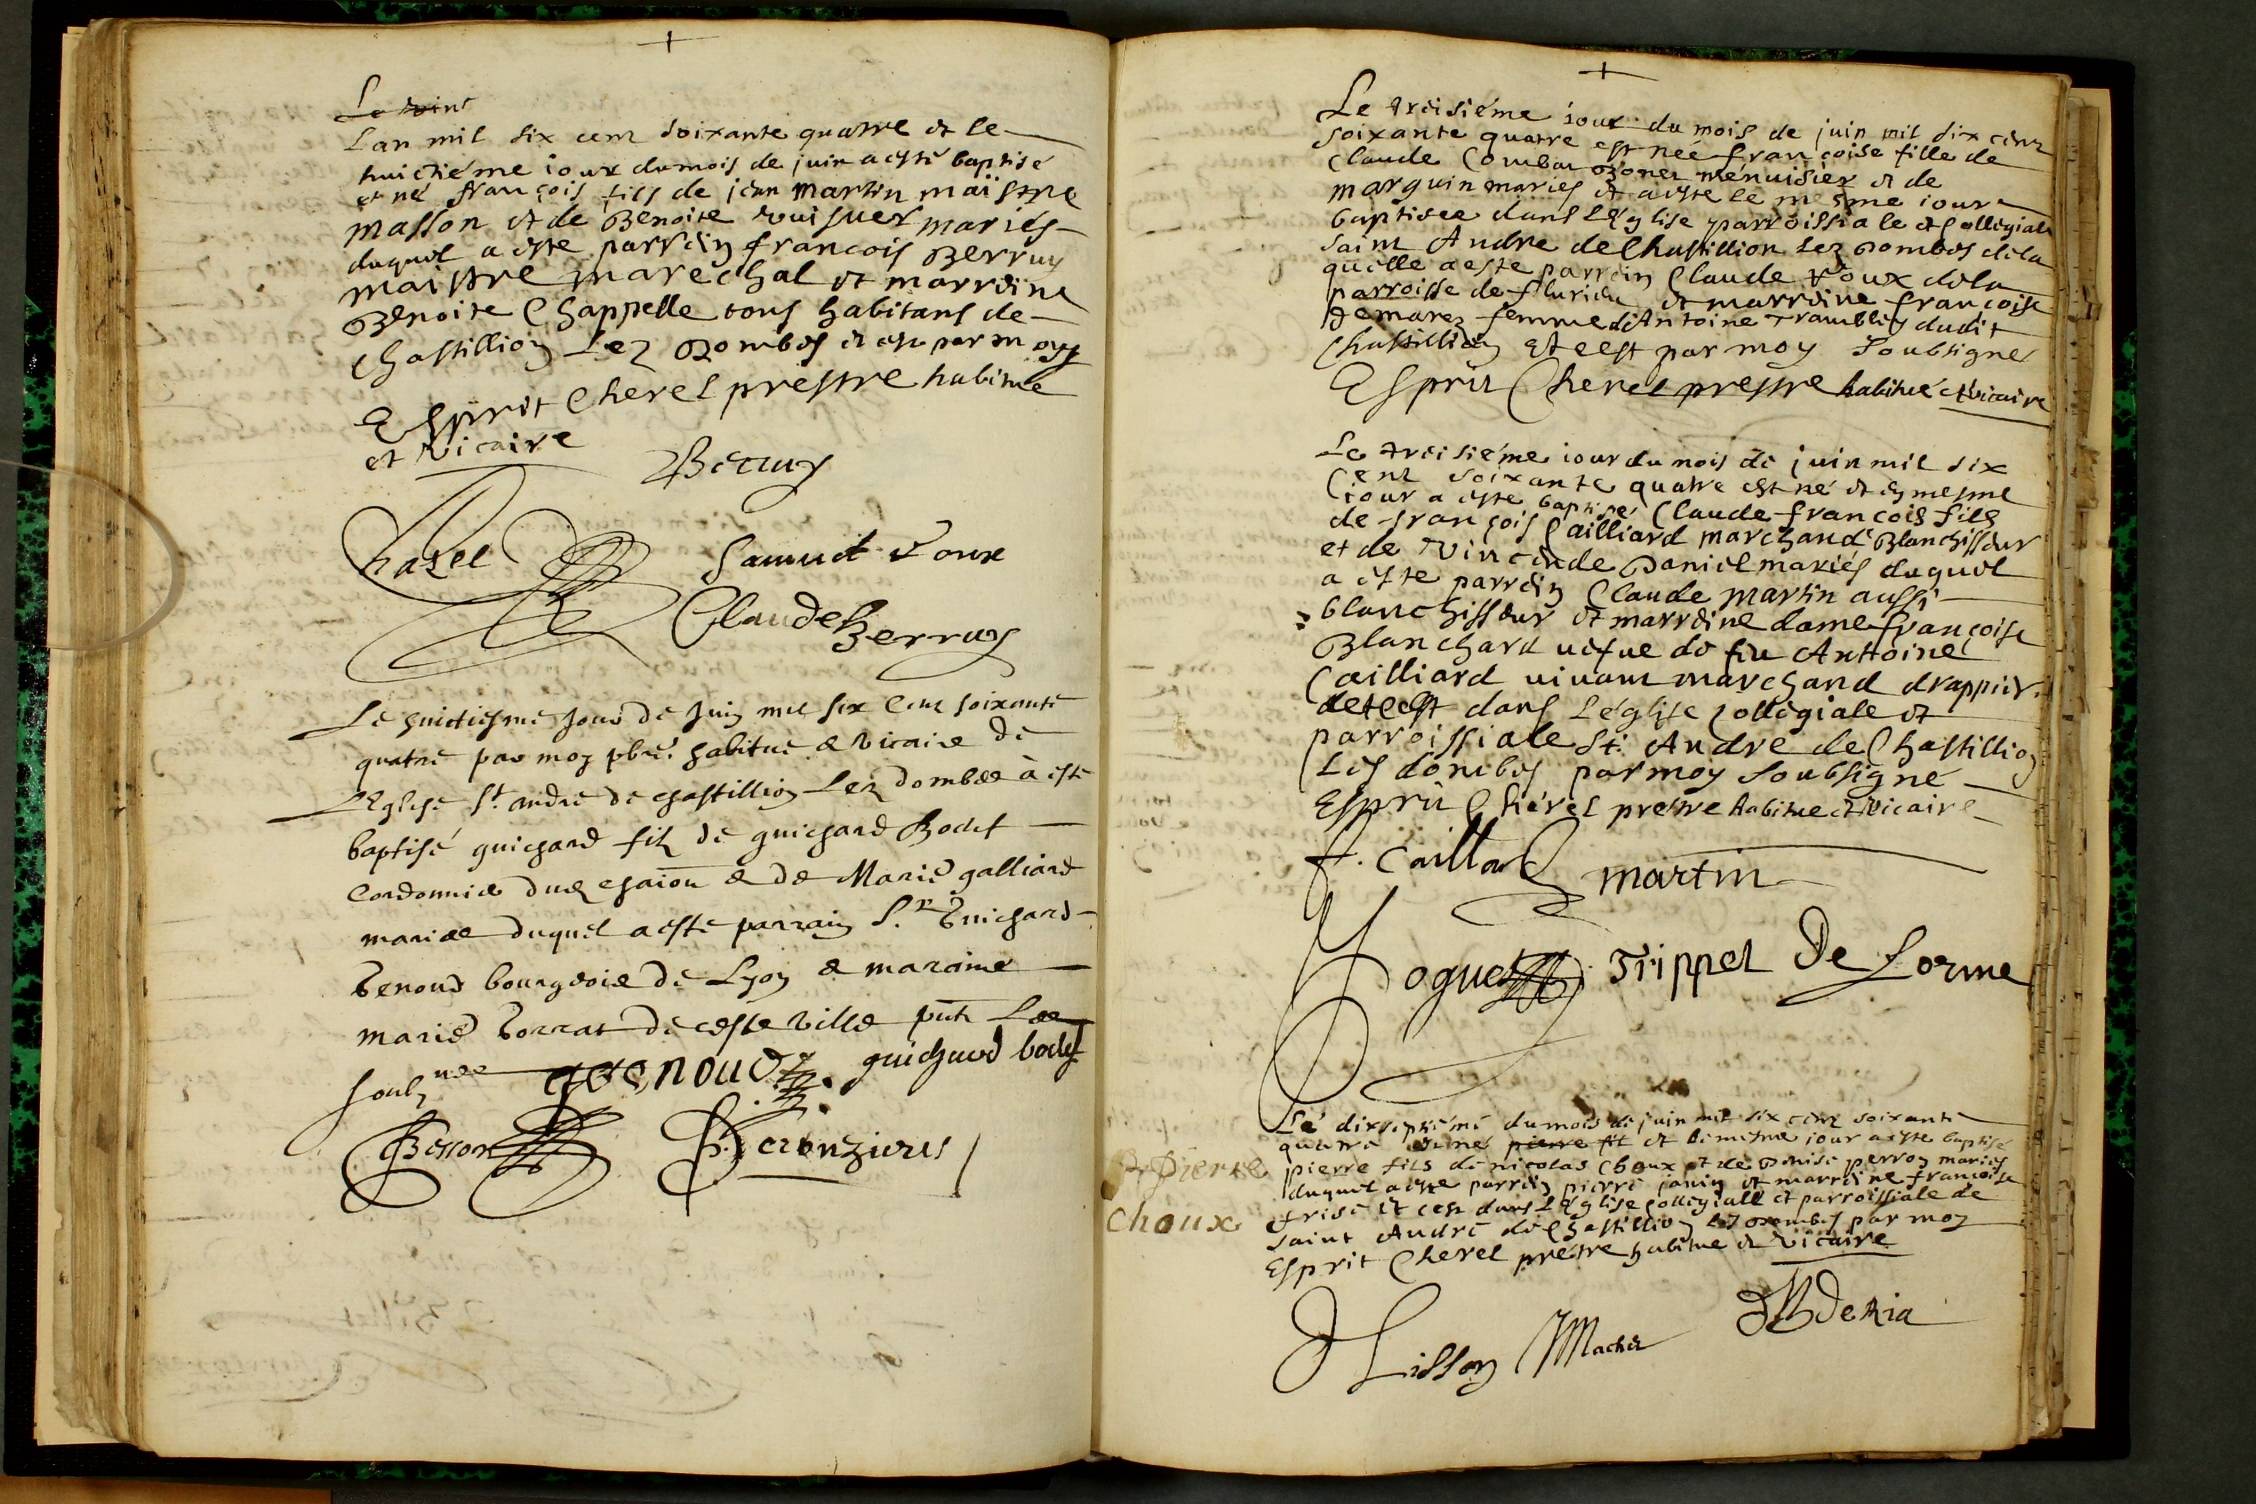 Le vint
Lan mil six cens soixante quatre et le
huictiéme iour du mois de juin a esté baptisé
et né françois fils de jean martin maistre
masson et de Benoite mariés
duquel a este parrein francois Berruy
maistre marechal et marreine
Benoite Chappelle tous habitans de
Chastillion Lez Dombes et cest par moy
Esprit Cherel prestre habitue
et vicaire
Berruy
Chazel
Samuel Roux
Claude Berruy
Le huictiesme jour de Juin mil six cens soixante
quatre par moy pbre habitue & vicaire de
L'Eglise St. andre de chastillion Lez dombes à esté
baptisé guichard filz de guichard Bodet
Cordonnier dud & de Marie galliard
mariae duquel a esté parrain Sr. Guichard
Genoud bourgeois de Lyon & maraine
marie de ceste ville Les
soubznes
Genoud
guichard bodet
Besson
Deronzieres
Le treisiéme iour du mois de juin mil six cens
soixante quatre est née françoise fille de
Claude Combat menuisier et de
marguin mariés et a este le mesme iour
baptisee dans L'eglise parroissiale et Collegiale
saint Andre de Chastillion Lez Dombes de la
quelle a este parrein Claude Roux de la
parroisse de flurieu et marreine françoise
Demarez femme d'Antoine Trambley dudit
Chastillion Et cest par moy Soubsigne
Esprit Cherel prestre habitué et vicaire
Le treisiéme iour du mois de juin mil six
Cens soixante quatre est né et le mesme
iour a este baptisé Claude francois fils
de françois Cailliard marchand Blanchisseur
et de Vincende Daniel mariés duquel
a este parrein Claude martin aussi
blanchisseur et marreine dame françoise
Blanchard uefue de feu Anthoine
Cailliard uiuant marchand drappier
et cest dans L'église collegiale et
parroissiale St. Andre de Chastillion
Les dombes par moy soubsigné
Esprit Cherel prestre habitue et vicaire
f. Caillard
martin
Goguet
Trippet
De Lorme
Le dixseptiéme du mois de juin mil six cens soixante
quatre est né pierre fil et le mesme iour a este baptisé
pierre fils de nicolas Choux et de Denise perron mariés
duquel a este parrein pierre janin et marreine francoise
frise et cest dans L'Eglise collegialle et parroissiale de
saint André de Chastillion Les Dombes par moy
Esprit Cherel prétre habitue et vicaire
Pierre
Choux
Lisson
Machet
Deria